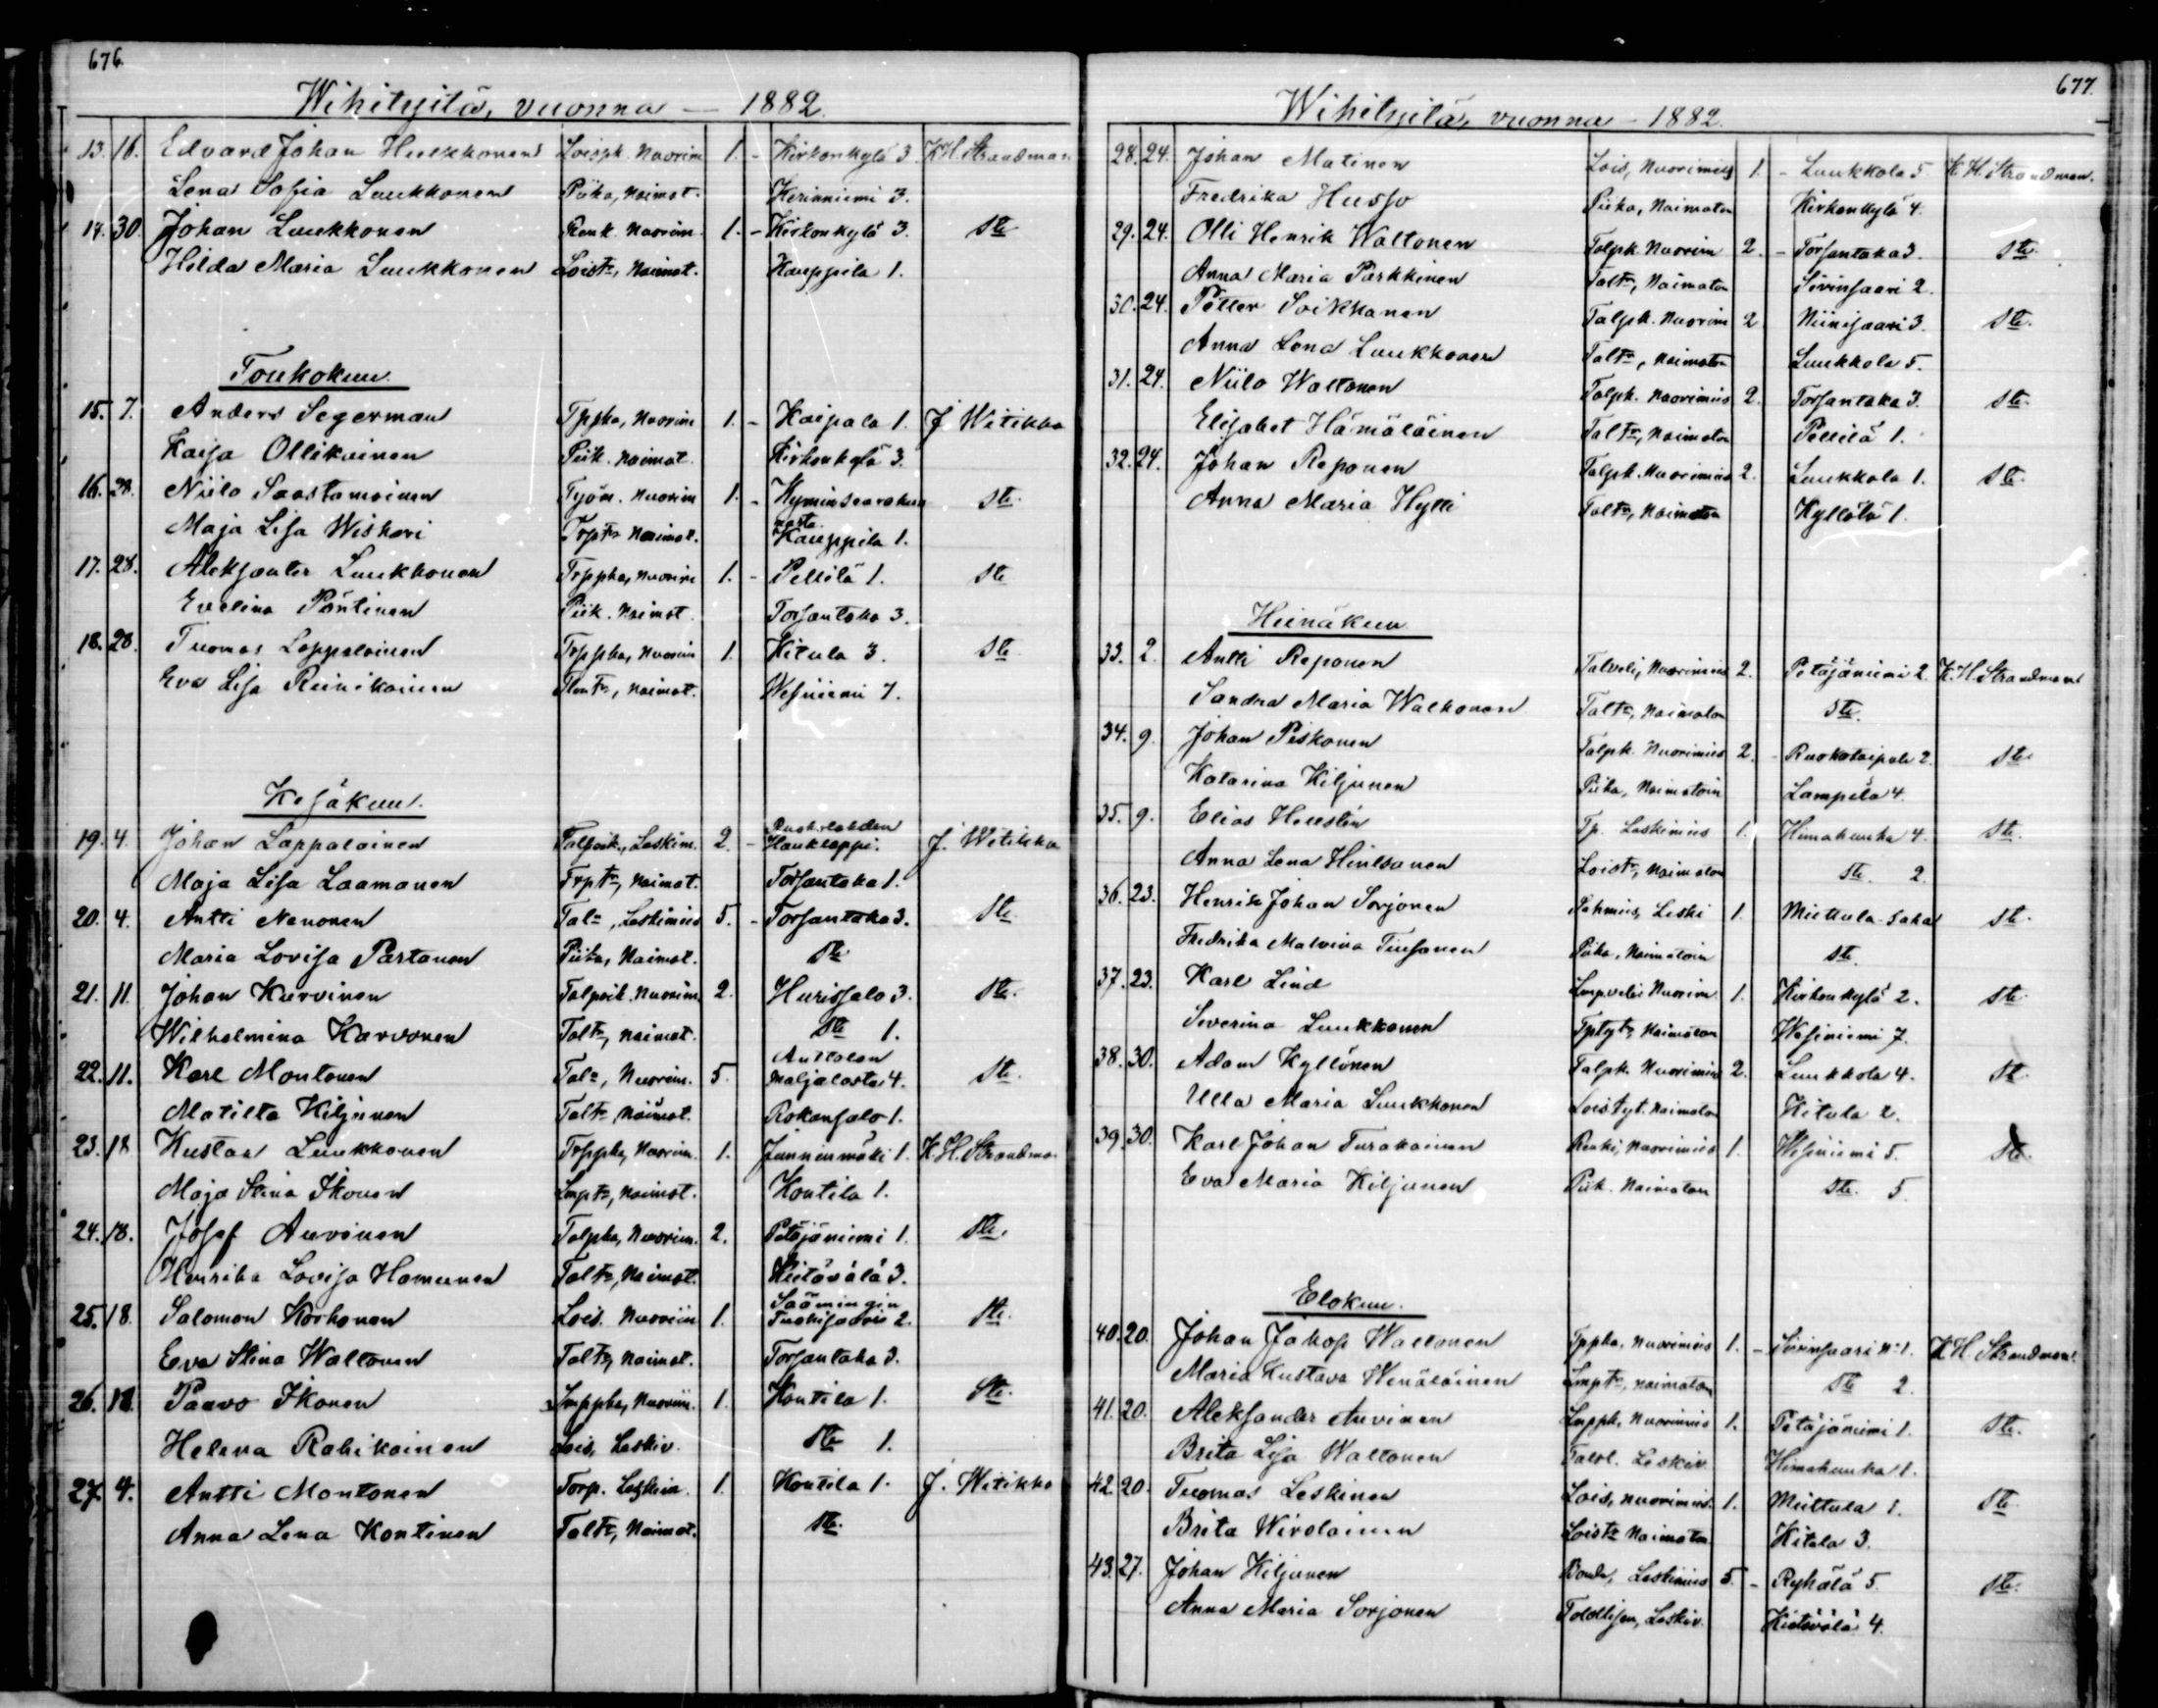 676.
Wihityitä, vuonna — 1882.
13. 16. Edvard Johan Huuskkonen Loisp. Nuorim 1. - Kirkonkylä 3. K.H. Strandman
Lena Sofia Luukkonen Piika, Naimat. Kerinniemi 3.
14. 30. Johan Luukkonen Renk. Nuorim. 1. - Kirkonkylä 3. Ste
Hilda Maria Luukkonen Loistr, Naimat. Kauppila 1.
Toukokuu.
15. 7. Anders Segerman Tppka, Nuorim 1. - Kaipala 1. J. Witikka
Kaisa Ollikainen Piik. Naimat. Kirkonkylä 3.
16. 28. Niilo Saastamoinen Työm. Nuorim 1. - Kyminsaarahen Ste.
nasta.
Maja Lisa Wiskari Trptr Naimat. Kauppila 1.
17. 28. Aleksanter Luukkonen Trppka, Nuorim 1. - Pellilä 1. Ste
Evelina Pöntinen Piik. Naimat. Torsantaka 3.
18. 28. Tuomas Lappalainen Trppka, Nuorim 1. Kitula 3. Ste
Eva Lisa Reinikainen Rentr, Naimat. Wesiniemi 7.
Kesäkuu.
19. 4. Johan Lappalainen Talpoik., Leskim. 2. - Ruokolahden Haukloppi. J. Witikka
Maja Lisa Laamanen Trptr, Naimat. Torsantaka 1.
20. 4. Antti Nenonen Tal., Leskimies 5. - Torsantaka 3. Ste.
Maria Lovisa Partanen Piika, Naimat. Ste
21. 11. Johan Kurvinen Talpoik. Nuorim. 2. Hurissalo 3. Ste.
Wilhelmina Karvonen Taltr, Naimat. Ste 1.
22. 11. Karl Montonen Tal., Nuorim. 5. Anttolan Maljalasta 4. Ste.
Matilta Kiljunen Taltr, Naimat. Rokansalo 1.
23. 18 Kustaa Luukkonen Trppka, Nuorim. 1. Junninmäki 1. K.H. Strandman
Maja Stina Ikonen Lmptr, Naimat. Kontila 1.
24. 18. Josef Auvinen Talpka, Nuorim. 2. Petäjäniemi 1. Ste.
Henrika Lovisa Hamunen Taltr, Naimat. Kietävälä 3.
25. 18. Salomon Korhonen Lois. Nuorim 1. Säämingin Tuohisaari 2. Ste.
Eva Stina Waltonen Taltr, Naimat. Torsantaka 3.
26. 18. Paavo Ikonen Lmppka, Nuorim. 1. Kontila 1. Ste.
Helena Rahikainen Lois, Leskiv. Ste 1.
27. 4. Antti Montonen Torp. Leskim. 1. Kontila 1. J. Witikka
Anna Lena Kontinen Taltr, Naimat. Ste.
677.
Wihityitä, vuonna - 1882.
28. 24. Johan Matinen Lois, Nuorimies 1. - Luukkola 5 K.H. Strandman.
Fredrika Husso Piika, Naimaton Kirkonkylä 4.
29. 24. Olli Henrik Waltonen Talpk. Nuorim 2. - Torsantaka 3. Ste.
Anna Maria Parkkinen Taltr, Naimaton Sirinsaari 2.
30. 24. Petter Soikkanen Talpk. Nuorim 2. Niinisaari 3. Ste.
Anna Lena Luukkonen Taltr, Naimaton Luukkola 5.
31. 24. Niilo Waltonen Talpk. Nuorimies 2. Torsantaka 3. Ste.
Elisabet Hämäläinen Taltr, Naimaton Pellilä 1.
32. 24. Johan Reponen Talpk. Nuorimies 2. Luukkola 1. Ste.
Anna Maria Hytti Taltr, Naimaton Kyllölä 1.
Heinäkuu.
33. 2. Antti Reponen Talveli, Nuorimies 2. Petäjäniemi 2. K.H. Strandman
Sandra Maria Walkonen Taltr, Naimaton Ste.
34. 9. Johan Peskonen Talpk. Nuorimies 2. - Ruokotaipale 2. Ste
Katarina Kiljunen Piika, Naimatoin Lampila 4.
35. 9. Elias Hellstén Tp. Leskimies 1. Himahuuha 4. Ste.
Anna Lena Hintsanen Loistr, Naimaton Ste. 2.
36. 23. Henrik Johan Sorjonen Sahmies, Leski 1. Miettula saha Ste.
Fredrika Malvina Tiusanen Piika, Naimatoin Ste.
37. 23. Karl Lind Lmpveli Nuorim. 1. Kirkonkylä 2. Ste.
Severina Luukkonen Tptyt, Naimaton Wesiniemi 7.
38. 30. Adam Kyllönen Talpk. Nuorimies 2. Luukkola 4. Ste.
Ulla Maria Luukkonen Loistyt. Naimaton Kitula 2.
39. 30. Karl Johan Turakainen Renki, Nuorimies 1. Wesiniemi 5. Ste.
Eva Maria Kiljunen Piik. Naimaton Ste. 5.
Elokuu.
40. 20. Johan Jakop Waltonen Tppka, Nuorimies 1. - Sirinsaari No 1. K.H. Strandman.
Maria Kustava Wenäläinen Lmptr, Naimaton Ste 2.
41. 20. Aleksander Auvinen Lmppk, Nuorimies 1. Petäjäniemi 1. Ste.
Brita Lisa Waltonen Talol. Leskiv. Himahuuha 1.
42. 20. Tuomas Leskinen Lois, Nuorimies. 1. Miettula 1. Ste.
Brita Wirolainen Loistr Naimaton. Kitula 3.
43. 27. Johan Kiljunen Bonde, Leskimies 5. - Ryhälä 5. Ste.
Anna Maria Sorjonen Leskiv. Kietävälä 4.